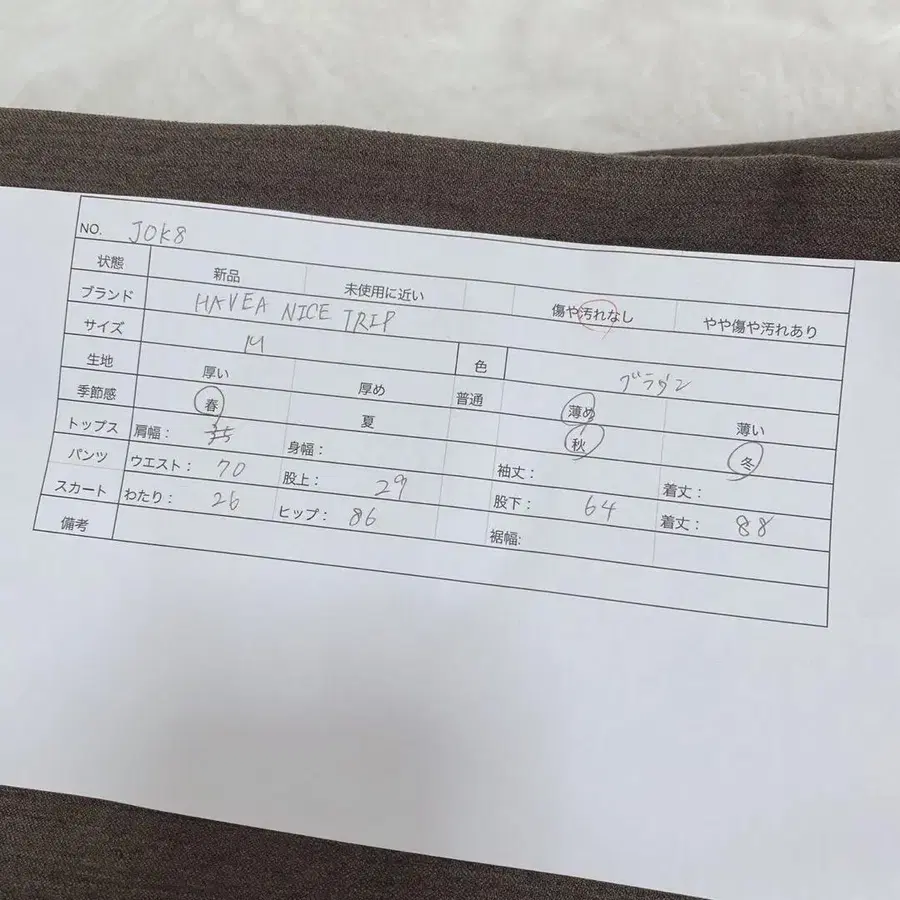 NO. JOK8
状態 新品 未使用に近い 傷や汚れなし やや傷や汚れあり
ブランド HAVEA NICE TRIP
サイズ M 色 ブラウン
生地 厚い 厚め 普通 薄め 薄い
季節感 春 夏 秋 冬
トップス 肩幅： 身幅： 袖丈： 着丈：
パンツ ウエスト： 70 股上： 29 股下： 64 着丈： 88
スカート わたり： 26 ヒップ： 86 裾幅:
備考